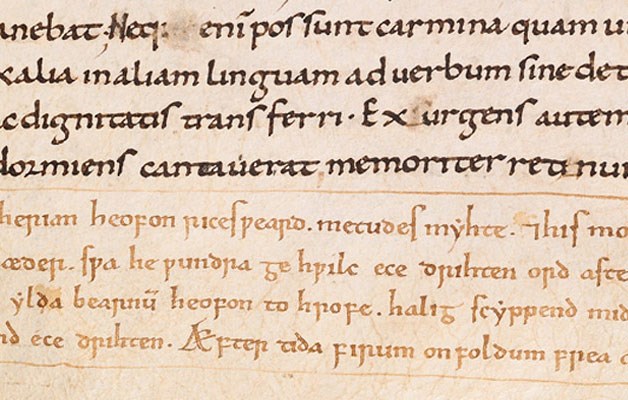 anebat. Neq: enī possunt carmina quam u
xalia in aliam linguam ad uerbum sine det
ac dignitatis transferri. Exsurgens autem
dormiens cantauerat memoriter retinu
herian heofon ricesƿeard. metudes myhte. ⁊his mo
æder. sƿa he ƿundra ge hƿilc ece drihten ord aste
ylda bearnū heofon to hrofe. halig scyppend mid
nd ece drihten. Æfter tida firum on foldum frea